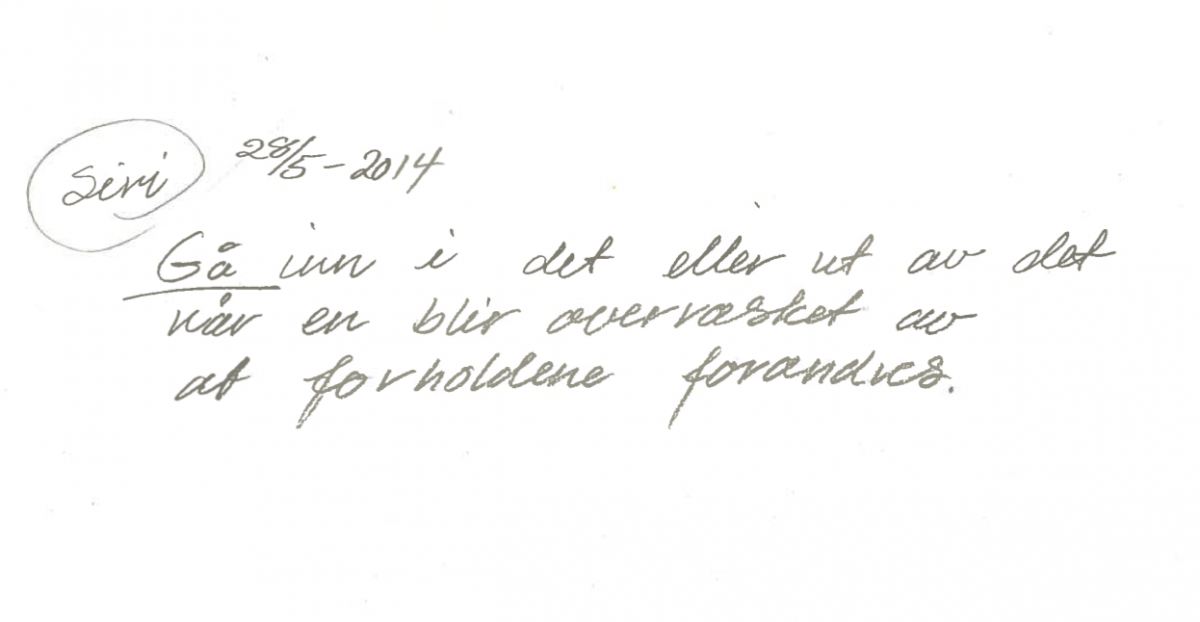 Siri 28/5-2014
Gå inn i det eller ut av det
når en blir overræsket av
at forholdene forandres.